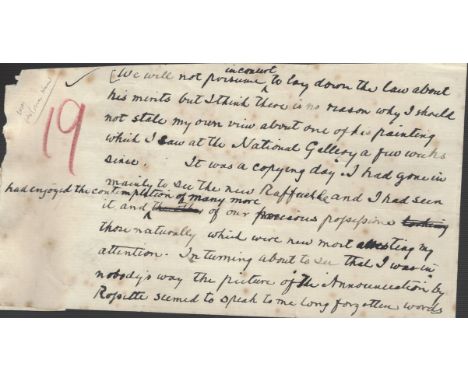 19
inconcert
[We will not presume to lay down the law about
his merits but I think there is no reason why I should
not state my own view about one of his painting
which I saw at the National Gallery a few weeks
since. It was a copying day. I had gone in
mainly to see the new Raffaelle and I had seen
had enjoyed the contemplation of many more
it, and of our precious possessions
those naturally which were new most attesting my
attention. In turning about to see that I was in
nobody's way the picture of the Annunciation by
Rossette seemed to speak to me long forgotten words